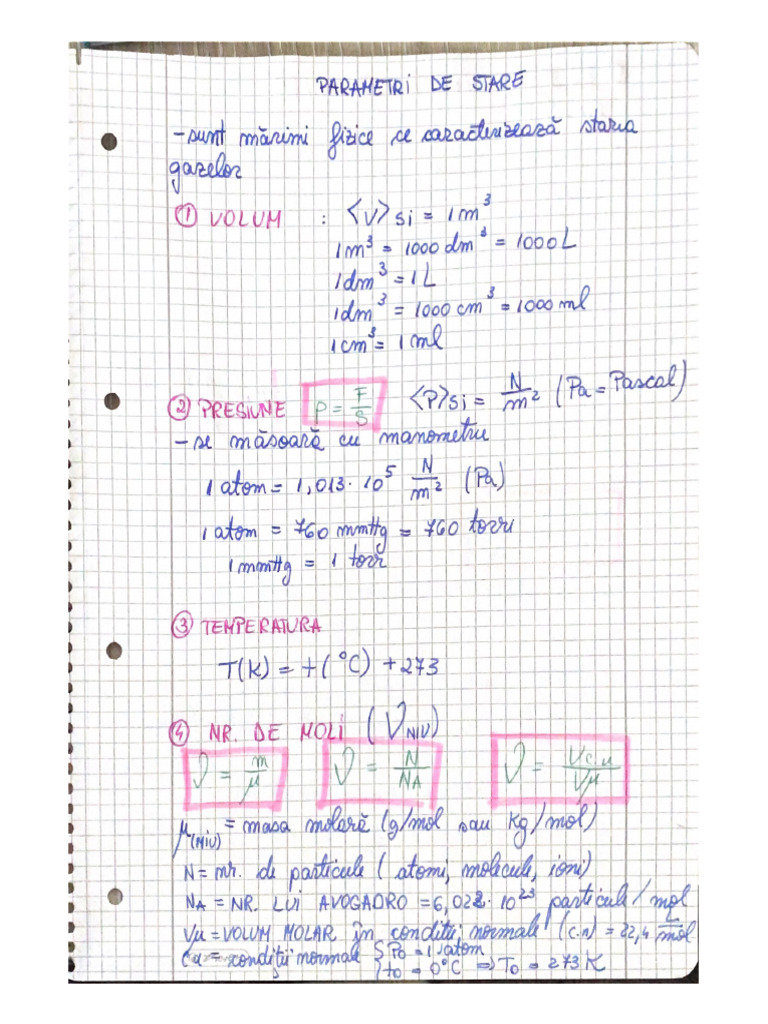 PARAMETRI DE STARE
- sunt mărimi fizice ce caracterizează staria
gazelor
① VOLUM : <V> si = 1 m³
1 m³ = 1000 dm³ = 1000 L
1 dm³ = 1 L
1 dm³ = 1000 cm³ = 1000 ml
1 cm³ = 1 ml
② PRESIUNE p = F/S <P> si = N/m² (Pa = Pascal)
- se măsoară cu manometru
1 atom = 1,013 · 10⁵ N/m² (Pa)
1 atom = 760 mmHg = 760 torri
1 mmHg = 1 torr
③ TEMPERATURA
T(K) = t(°C) + 273
④ NR. DE MOLI (ν NIU)
ν = m/μ ν = N/NA ν = Vc.u/Vμ
μ(MIU) = masa molară (g/mol sau kg/mol)
N = nr. de particule (atomi, molecule, ioni)
NA = NR. LUI AVOGADRO = 6,022 · 10²³ particule/mol
Vμ = VOLUM MOLAR în condiții normale (c.n) = 22,4 L/mol
Cu = condiții normale { P0 = 1 atom
t0 = 0°C ⇒ T0 = 273 K